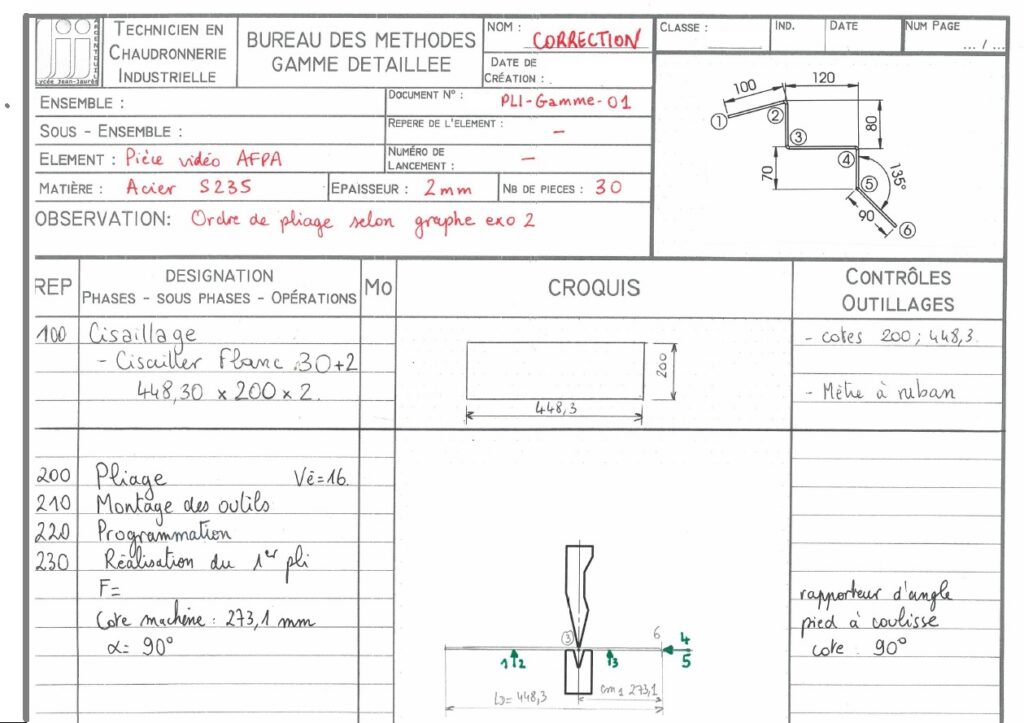 ARGENTEUIL
Lycée Jean-Jaurès
TECHNICIEN EN
CHAUDRONNERIE
INDUSTRIELLE
BUREAU DES METHODES
GAMME DETAILLEE
NOM : CORRECTION
DATE DE
CRÉATION :
CLASSE :
IND.
DATE
NUM PAGE
... / ...
ENSEMBLE :
DOCUMENT N° : PLI-Gamme-01
SOUS - ENSEMBLE :
REPERE DE L'ELEMENT : -
ELEMENT : Pièce vidéo AFPA
NUMÉRO DE
LANCEMENT : -
MATIÈRE : Acier S235
EPAISSEUR : 2mm
NB DE PIECES : 30
OBSERVATION: Ordre de pliage selon graphe exo 2
100
120
80
70
135°
90
1
2
3
4
5
6
REP
DESIGNATION
PHASES - SOUS PHASES - OPÉRATIONS
Mo
CROQUIS
CONTRÔLES
OUTILLAGES
100 Cisaillage
- Cisailler Flanc 30+2
448,30 x 200 x 2.
200
448,3
- cotes 200 ; 448,3.
- Mètre à ruban
200 Pliage Vé=16.
210 Montage des outils
220 Programmation
230 Réalisation du 1er pli
F=
Cote machine : 273,1 mm
α= 90°
3
6
4
5
1 2
3
cm1 273,1
LD= 448,3
rapporteur d'angle
pied à coulisse
cote : 90°